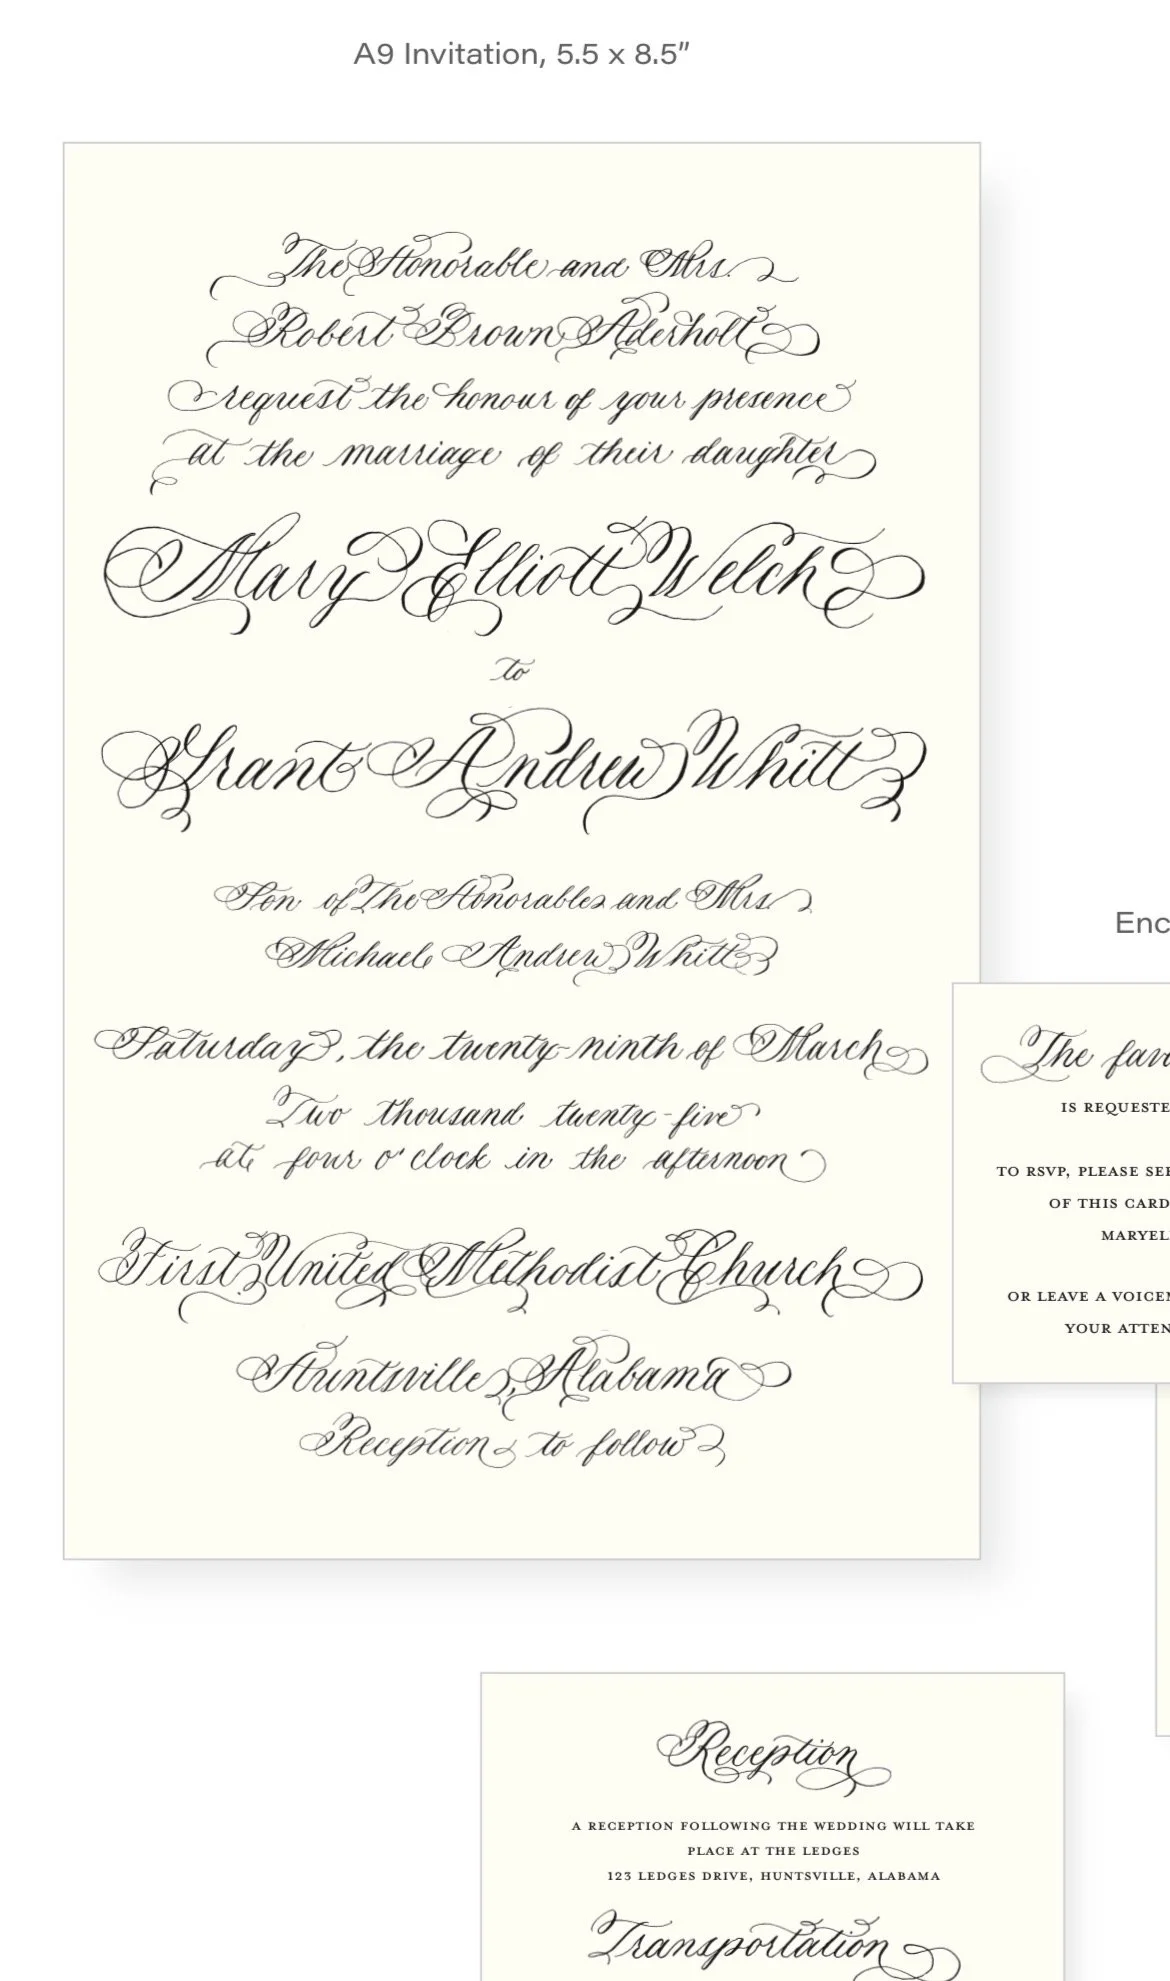 A9 Invitation, 5.5 x 8.5”
The Honorable and Mrs.
Robert Brown Aderholt
request the honour of your presence
at the marriage of their daughter
Mary Elliott Welch
to
Grant Andrew Whitt
Son of The Honorable and Mrs.
Michael Andrew Whitt
Saturday, the twenty-ninth of March
Two thousand twenty-five
at four o'clock in the afternoon
First United Methodist Church
Huntsville, Alabama
Reception to follow
Enc
The fav
IS REQUESTE
TO RSVP, PLEASE SE
OF THIS CARD
MARYEL
OR LEAVE A VOICE
YOUR ATTEN
Reception
A RECEPTION FOLLOWING THE WEDDING WILL TAKE
PLACE AT THE LEDGES
123 LEDGES DRIVE, HUNTSVILLE, ALABAMA
Transportation